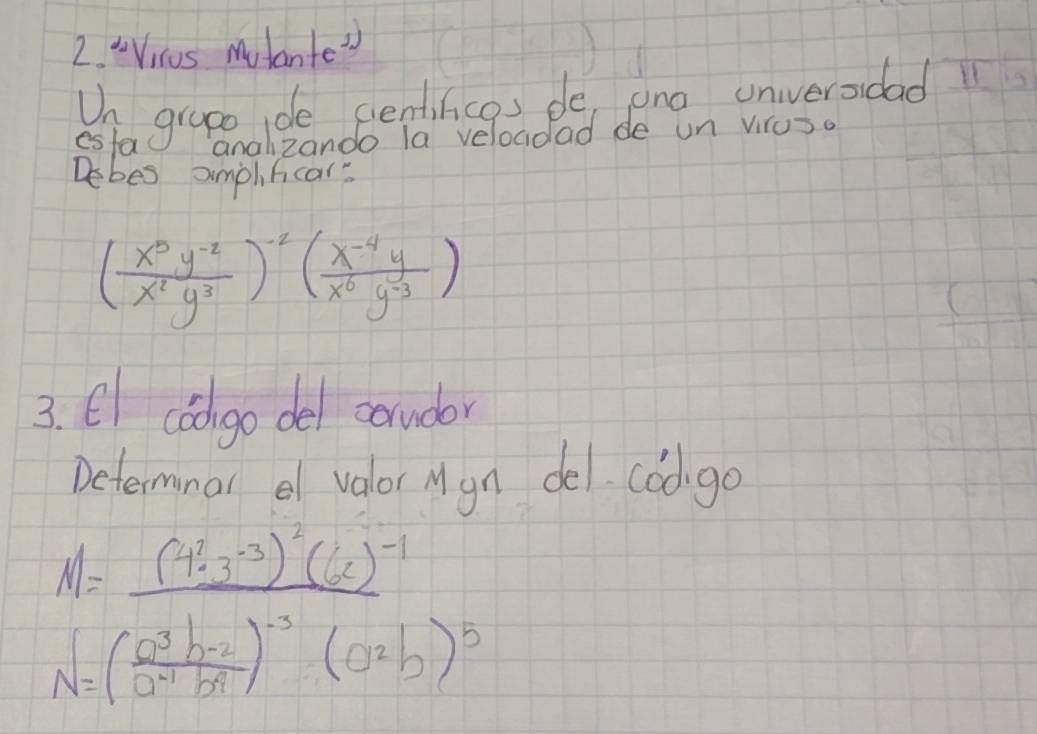 2. "Virus Mutante"
Un grupo de cientificos de una universidad
esta analizando la velocidad de un virus.
Debes simplificar:
(x⁵ y⁻² / x² y³)⁻² (x⁻⁴ y / x⁶ y⁻³)
3. El código del servidor
Determinar el valor M y n del código
M = (4² · 3⁻³)² (6²)⁻¹
N = (a³ b⁻² / a⁻¹ b⁴)⁻³ · (a² b)⁵